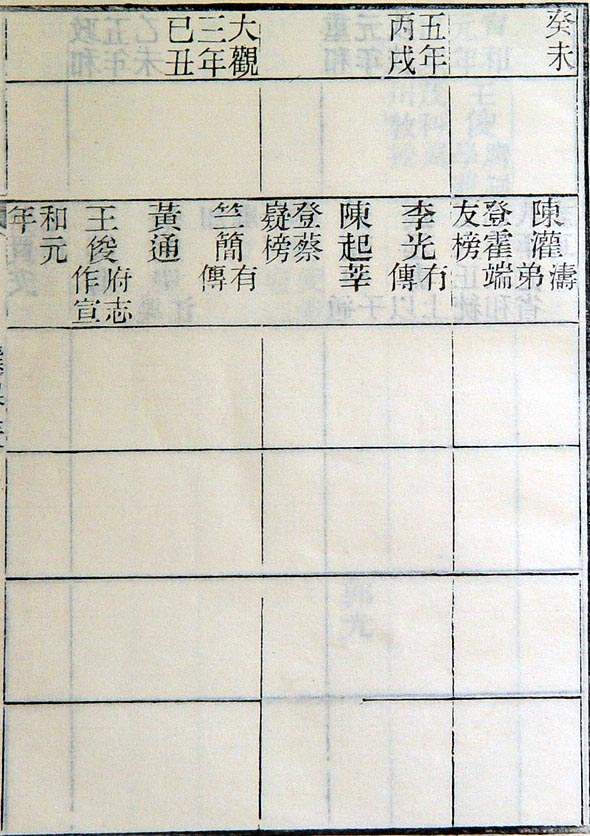 癸未
五年
丙戌
大觀
三年
已丑
陳灌濤弟
登霍端
友榜
李光有傳
陳起莘
登蔡
嶷榜
竺簡有傳
黃通
王俊府志作宣
和元
年